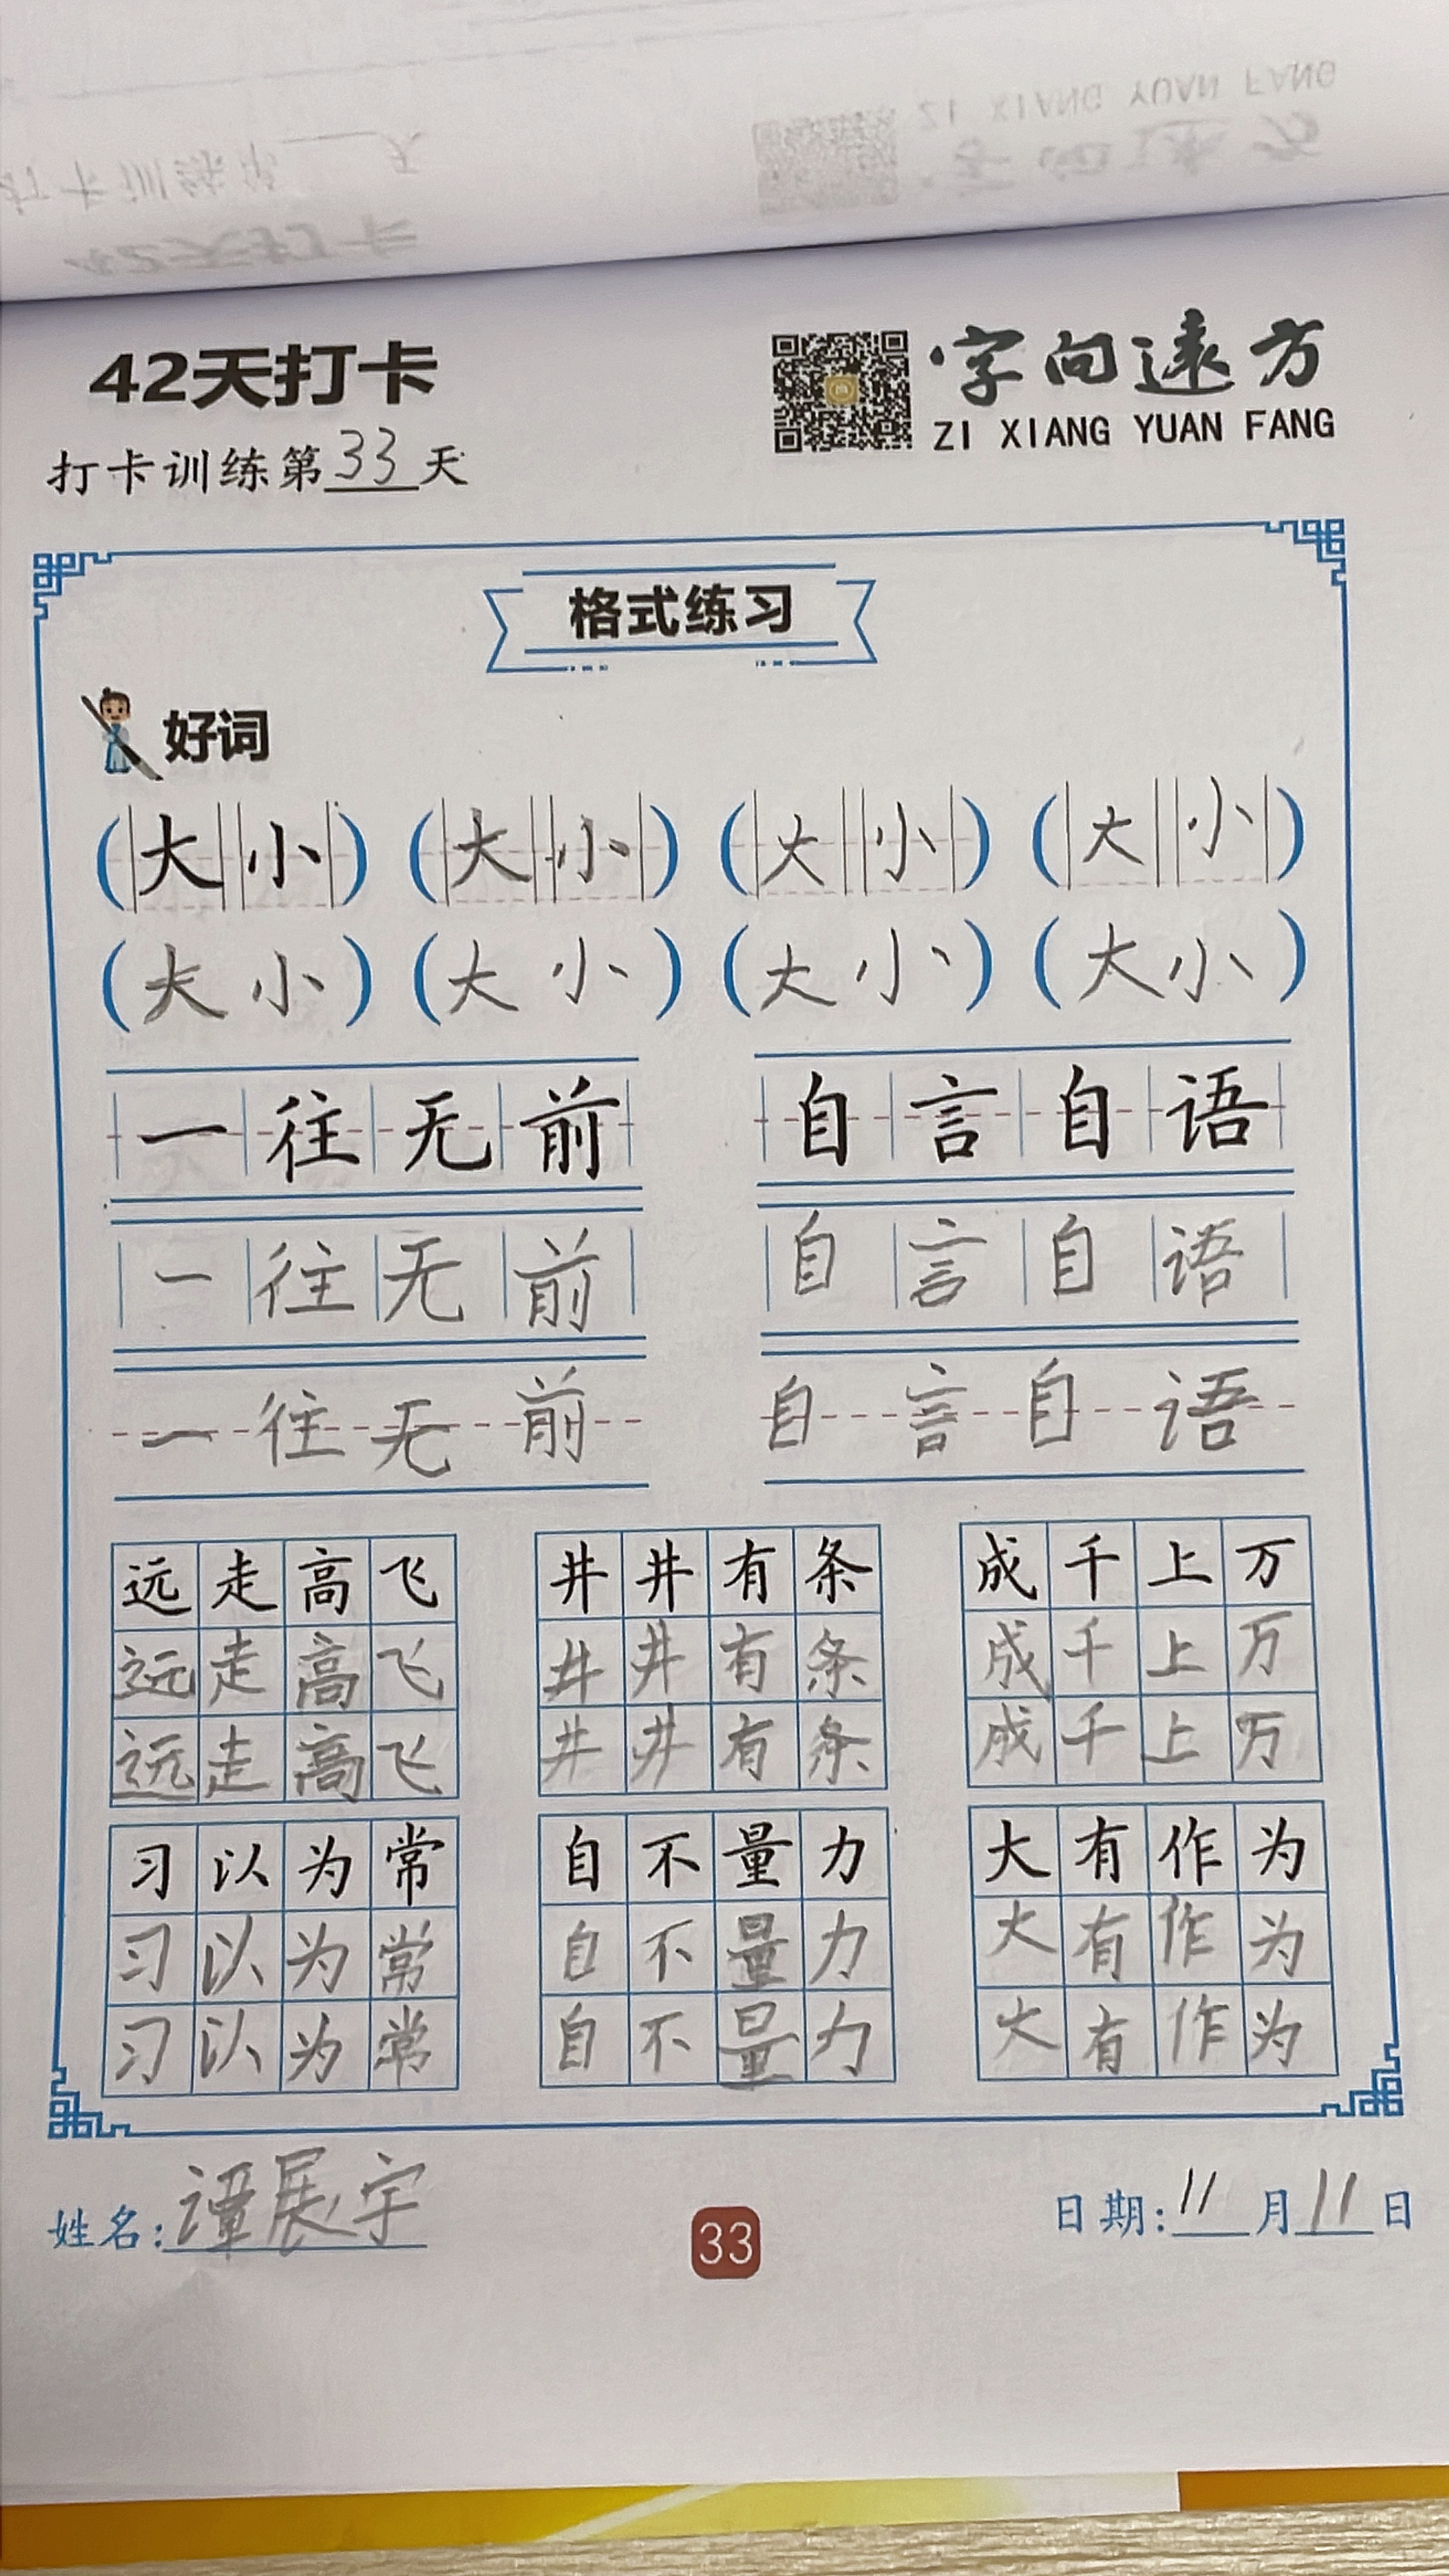 42天打卡
字向远方
ZI XIANG YUAN FANG
打卡训练第33天
格式练习
好词
(大小) (大小) (大小) (大小)
(大小) (大小) (大小) (大小)
一往无前 自言自语
一往无前 自言自语
一往无前 自言自语
远走高飞 井井有条 成千上万
远走高飞 井井有条 成千上万
远走高飞 井井有条 成千上万
习以为常 自不量力 大有作为
习以为常 自不量力 大有作为
习以为常 自不量力 大有作为
姓名:谭展宇 33 日期:11月11日